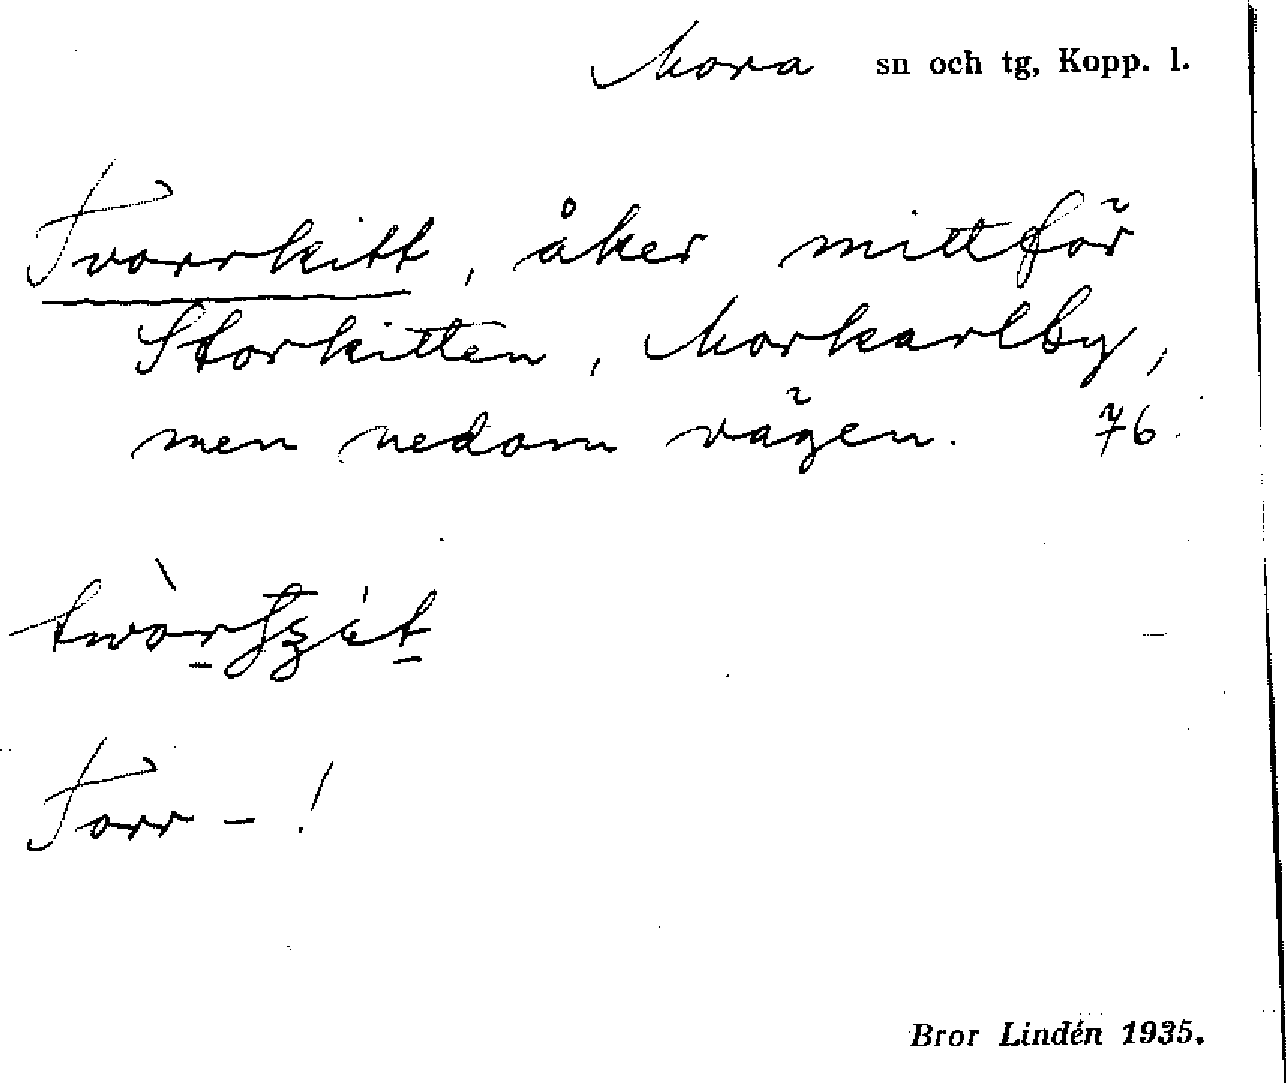 Mora sn och tg, Kopp. l.
Tvorrkitt, åker mittför
Storkitten, Morkarlby,
men nedom vägen. 76.
Torr - !
Bror Lindén 1935.